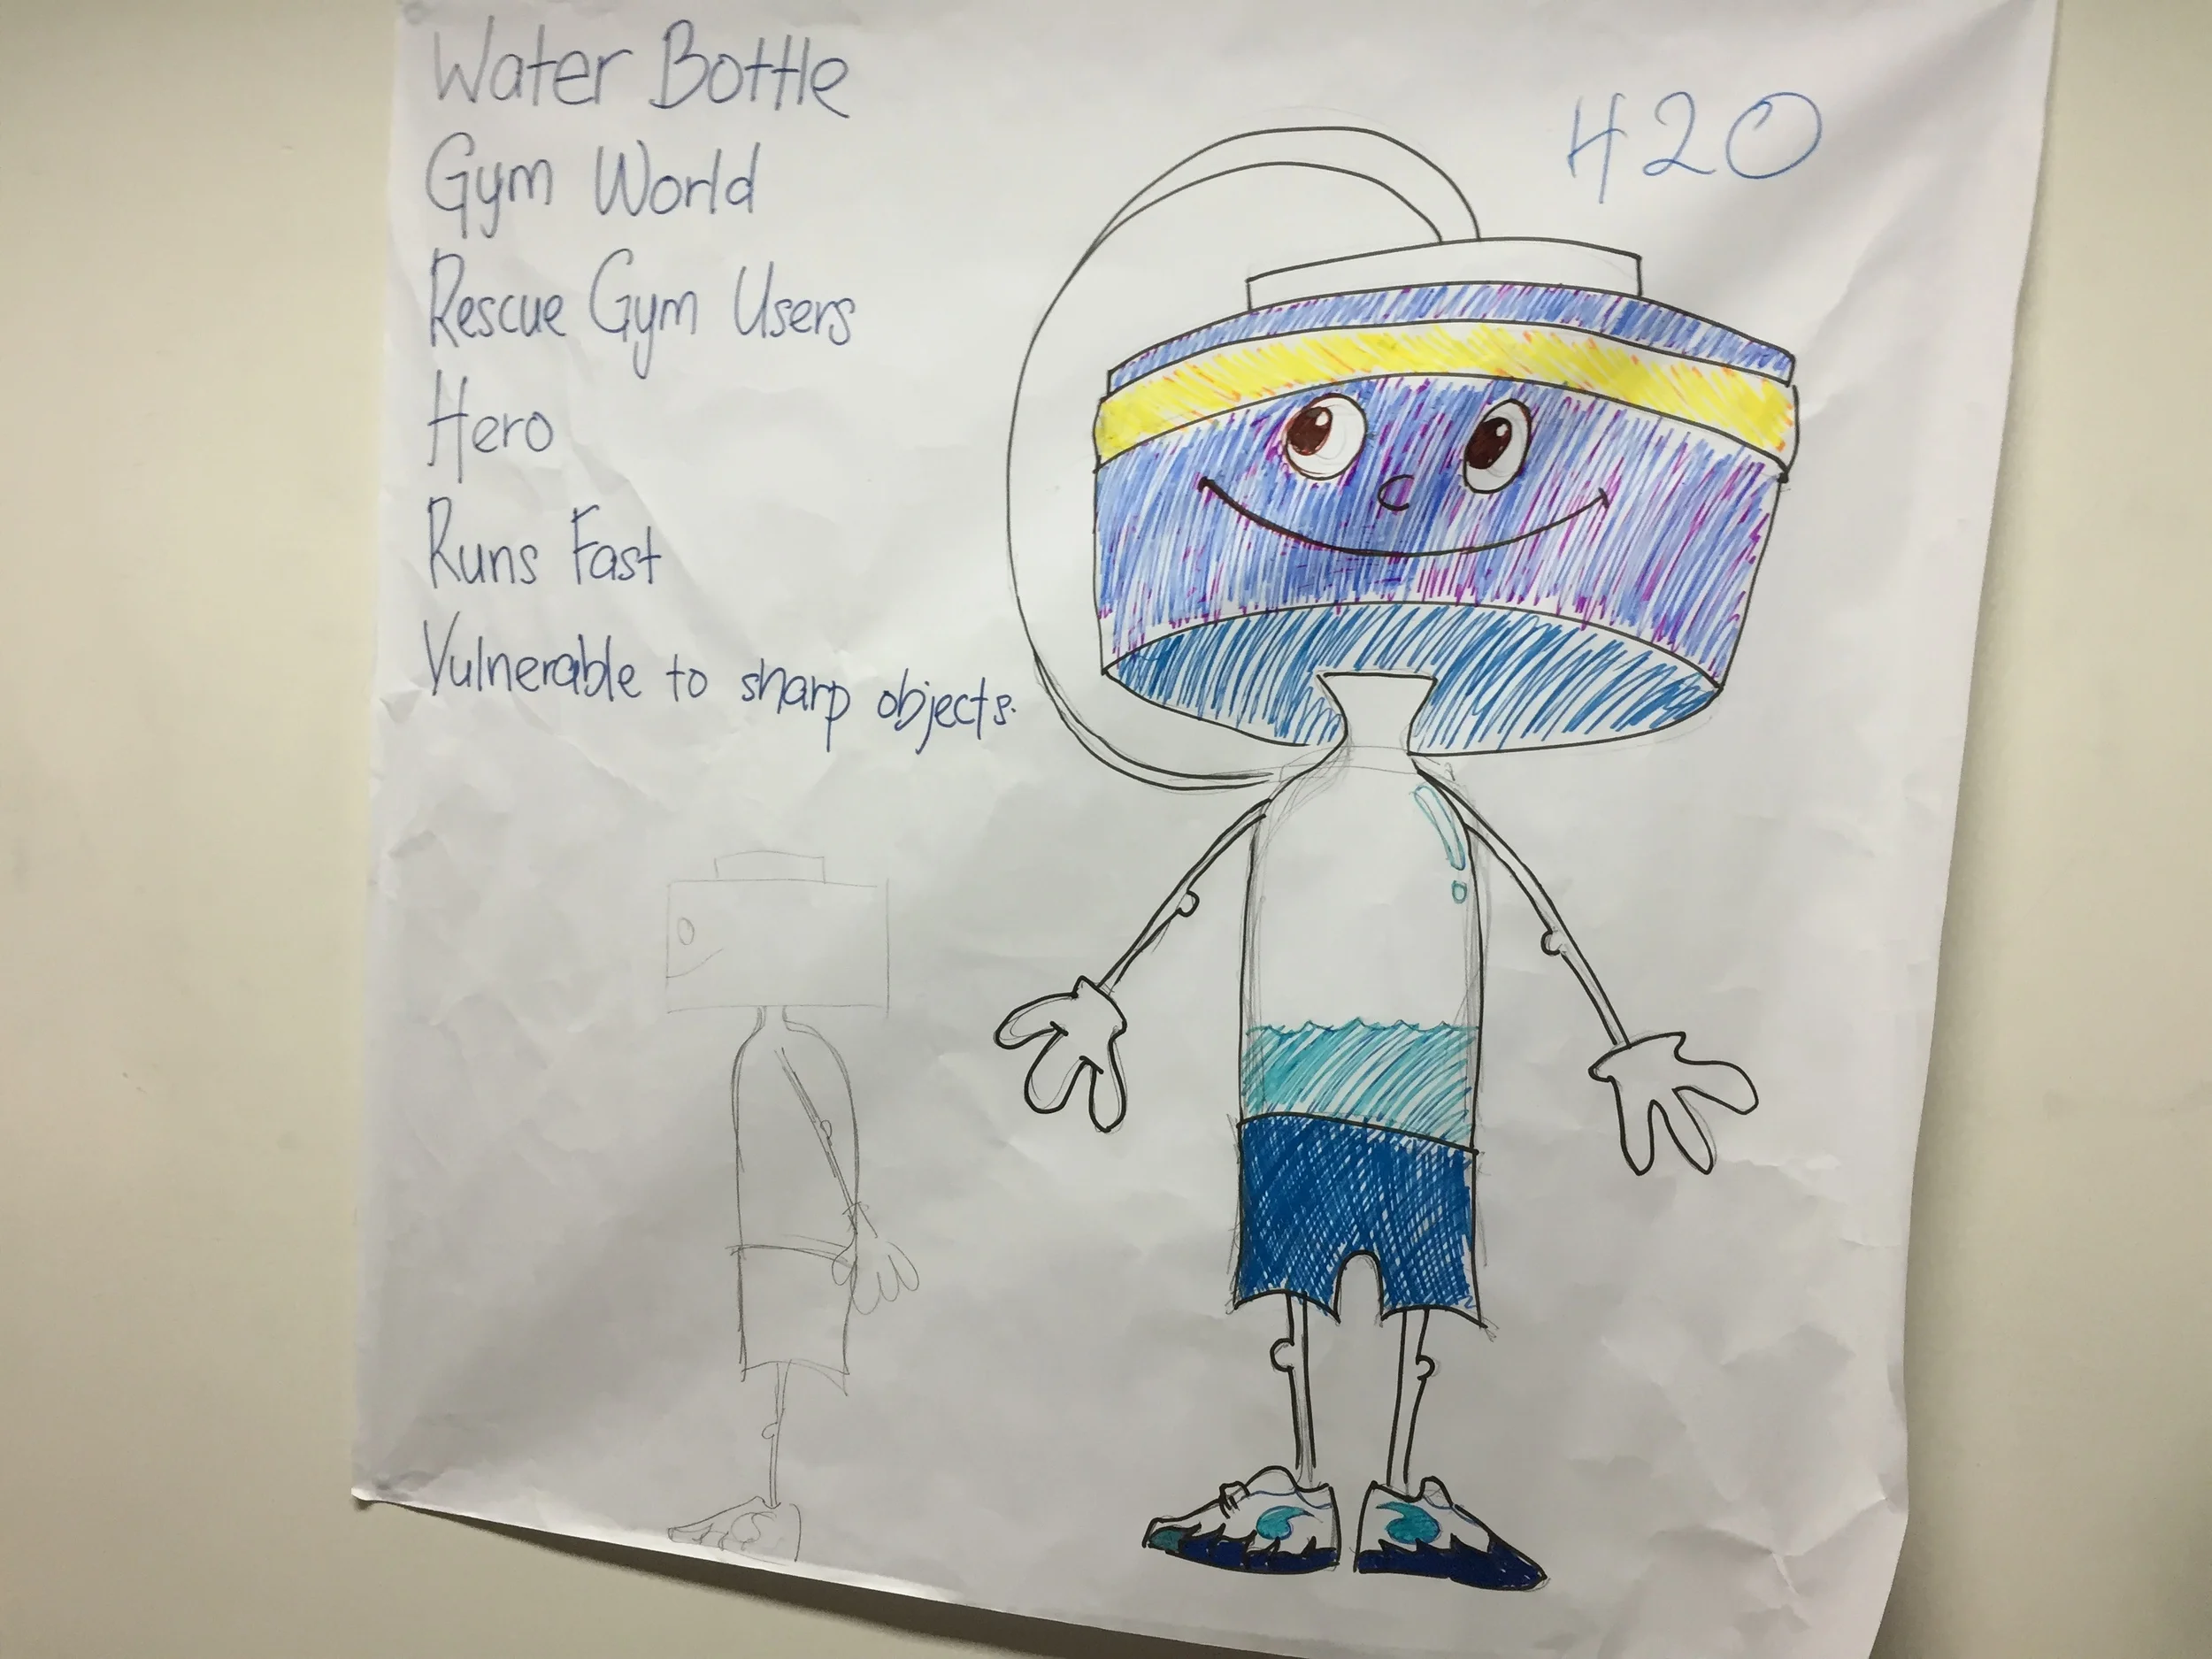 Water Bottle
Gym World
Rescue Gym Users
Hero
Runs Fast
Vulnerable to sharp objects.
H2O